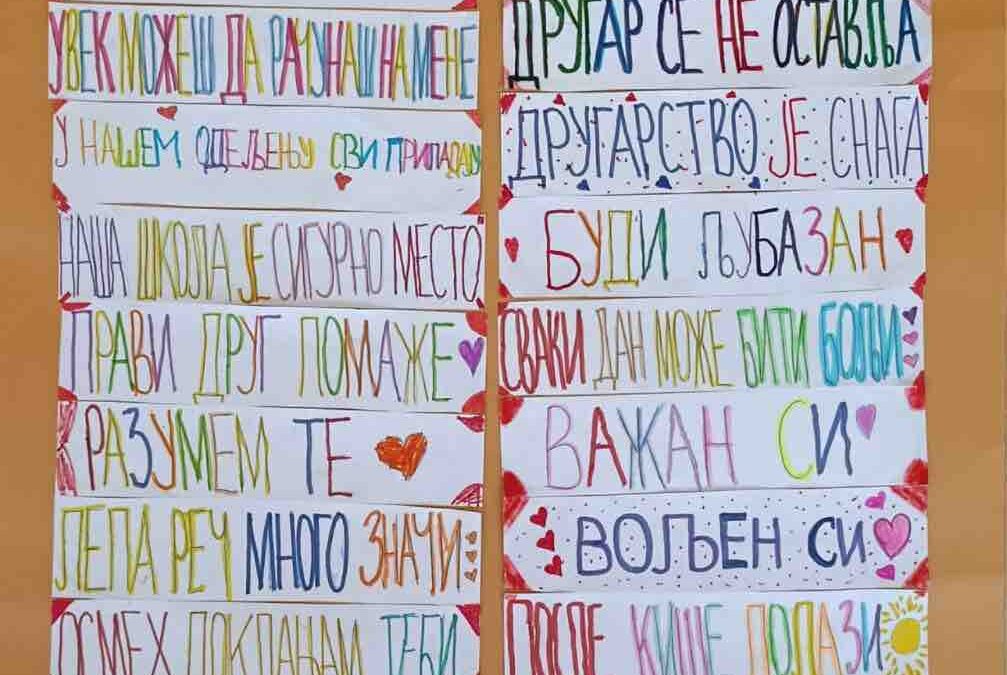 УВЕК МОЖЕШ ДА РАЧУНАШ НА МЕНЕ
У НАШЕМ ОДЕЉЕЊУ СВИ ПРИПАДАЈУ
НАША ШКОЛА ЈЕ СИГУРНО МЕСТО
ПРАВИ ДРУГ ПОМАЖЕ
РАЗУМЕМ ТЕ
ЛЕПА РЕЧ МНОГО ЗНАЧИ
ОСМЕХ ПОКЛАЊАМ ТЕБИ
ДРУГАР СЕ НЕ ОСТАВЉА
ДРУГАРСТВО ЈЕ СНАГА
БУДИ ЉУБАЗАН
СВАКИ ДАН МОЖЕ БИТИ БОЉИ
ВАЖАН СИ
ВОЉЕН СИ
ПОСЛЕ КИШЕ ДОЛАЗИ